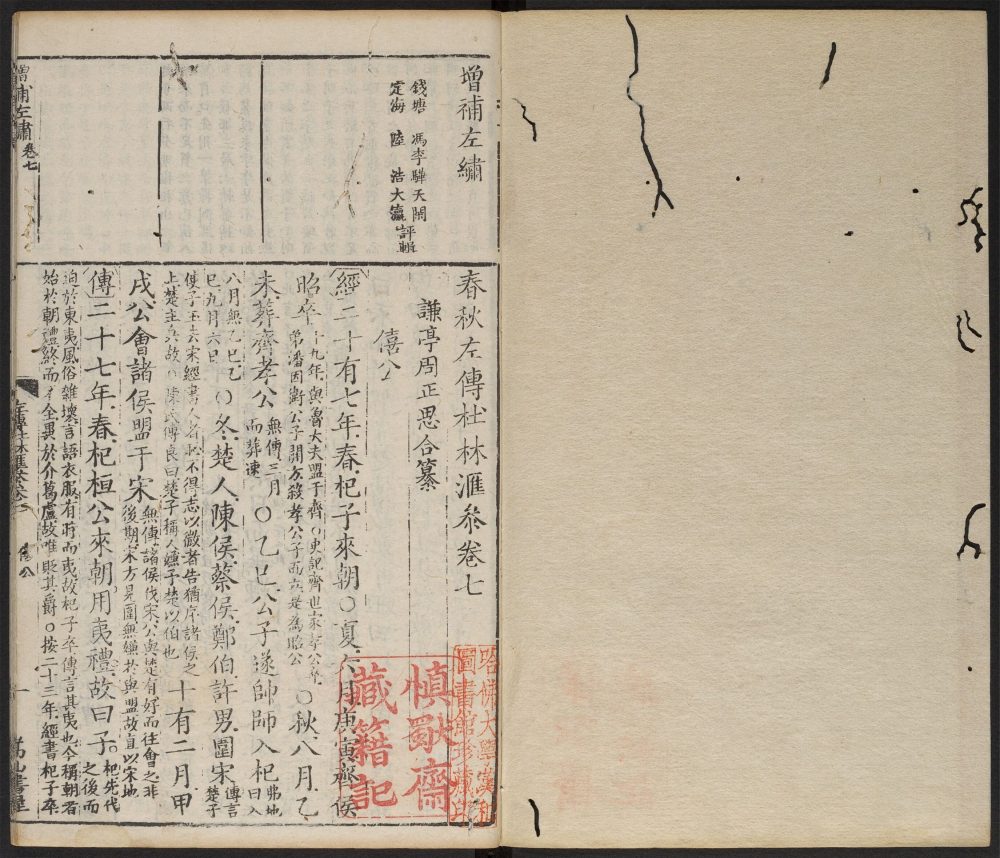 增補左繡
錢塘 馮李驊天閑
定海 陸 浩大瀛 評輯
春秋左傳杜林滙叅卷七
謙亭周正思合纂
僖公
經二十有七年春杞子來朝○夏六月庚寅齊侯
昭卒十九年與魯大夫盟于齊○史記齊世家孝公卒弟潘因衛公子開方殺孝公子而立是為昭公○秋八月乙
未葬齊孝公無傳三月而葬速○乙巳公子遂帥師入杞弗地曰入
八月無乙巳乙巳九月六日○冬楚人陳侯蔡侯鄭伯許男圍宋傳言楚子
使子玉去宋經書人者恥不得志以微者告猶序諸侯之上楚主兵故○陳氏傅良曰楚子稱人嫌予楚以伯也十有二月甲
戌公會諸侯盟于宋無傳諸侯伐宋公與楚有好而往會之非後期宋方見圍無嫌於與盟故直以宋地
傳二十七年春杞桓公來朝用夷禮故曰子杞先代之後而
迫於東夷風俗雜壞言語衣服有時而夷故杞子卒傳言其夷也今稱朝者
始於朝禮終而不全異於介葛盧故唯貶其爵○按二十三年經書杞子卒
增補左繡 卷七
左傳杜林滙叅卷七 僖公 一
哈佛大學漢和
圖書館珍藏印
慎 齋
藏籍記